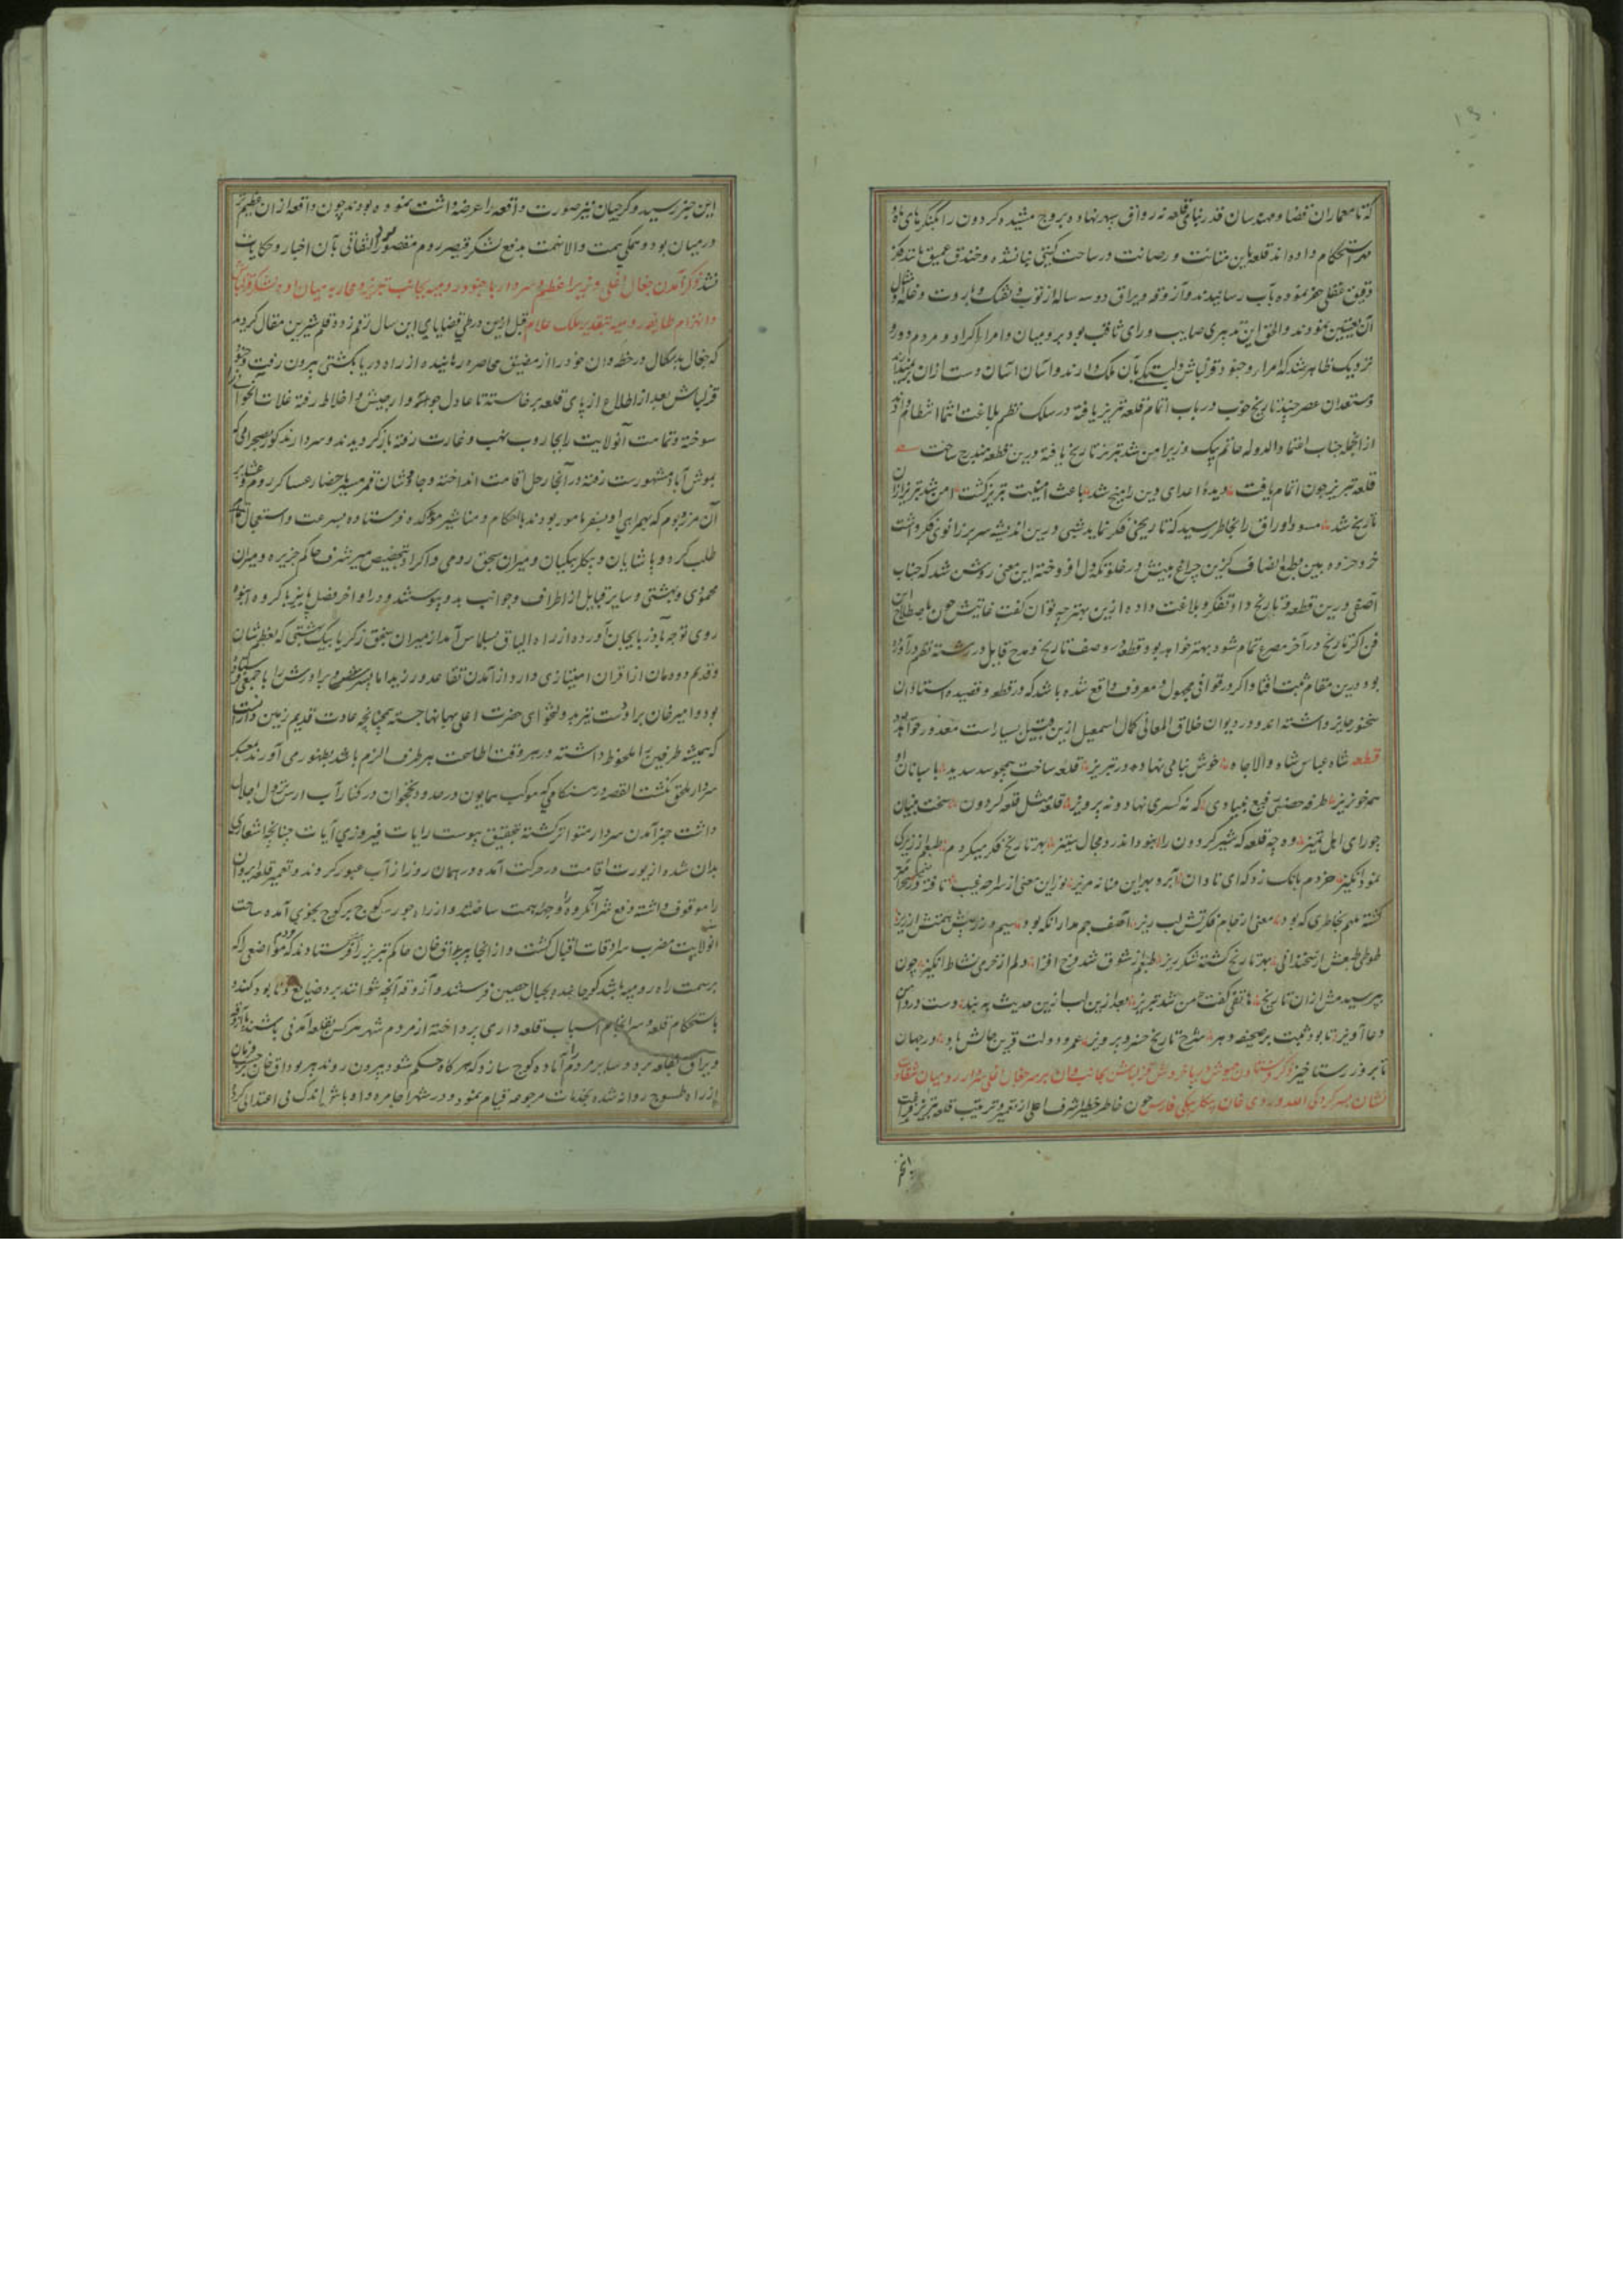 که تا معماران قضا و مهندسان قدر بنای قلعه نه رواق سپهر نهاده بروج مشیده گردون را بکنگرهای
استحکام داده‌اند قلعه باین متانت و رصانت در ساحت گیتی بنا نشده و خندق عمیق
دقیق عقلی حفر نموده بآب رسانیدند و آزوقه و یراق دو سه ساله از توپ و تفنک و باروت و غله
آن تعیین نمودند و الحق این تدبیری صایب و رای ثاقب بود بر رومیان و امرا اکراد و مردم دور و
نزدیک ظاهر شد که امرا و جنود قزلباش بآن ملک دارند و آسان آسان دست از آن
و مستعدان عصر چند تاریخ خوب در باب اتمام قلعه تبریز یافته در سلک نظم بلاغت انتما انتظام
از آنجمله جناب اعتماد الدوله حاتم بیک وزیر امن شد تبریز تاریخ یافته درین قطعه مندرج ساخت
قلعه تبریز چون اتمام یافت دیدهٔ اعدای دین را میخ شد باعث امنیت تبریز گشت امن شد تبریز از آن
تاریخ شد مسود اوراق را بخاطر رسید که تاریخی فکر نماید شبی درین اندیشه سر بر زانوی فکر داشت
خرد خرده بین بطبع انصاف گزین چراغ بینش در خلوتکده دل افروخته این معنی روشن شد که جناب
آصفی درین قطعه و تاریخ داد تفکر و بلاغت داده ازین بهتر چه توان گفت غایتش چون باصطلاح این
فن اگر تاریخ در آخر مصرع تمام شود بهتر خواهد بود قطعه در وصف تاریخ و مدح قایل در رشته نظم درآورده
بود درین مقام ثبت افتاد اگر در قوافی مجهول و معروف واقع شده باشد که در قطعه و قصیده استادان
سخنور جایز داشته‌اند و در دیوان خلاق المعانی کمال اسمعیل ازین قبیل بسیار است معذور خواهند
قطعه شاه عباس شاه والا جاه خوش بنامی نهاد در تبریز قلعه ساخت همچو سد سدید پاسبانان او
همه خونریز طرفه حصنی رفیع بنیادی که نه کسری نهاد و نه پرویز قلعه مثل قلعه گردون سخت بنیان
چو رای اهل تمیز وه چه قلعه که شیر گردون را نبود اندرو مجال ستیز بهر تاریخ فکر میکردم طبعم از زیرکی
نمود انگیز خردم بانک زد که ای نادان آبرو بهر این فسانه مریز نور این معنی از سراچه غیب تافته
گشته ملهم بخاطری که بود معنی از جام فکرتش لبریز آصف جم مدار آنکه بود سیم و زر پیش همتش ارزیز
طوطی طبعش از سخندانی بهر تاریخ گشته شکرریز طبعم از شوق شد فرح افزا دلم از خرمی نشاط انگیز چون
بپرسیدمش از آن تاریخ هاتفی گفت من شد تبریز بعد ازین لب ازین حدیث به بند دست در دامن
دعا آویز تا بود ثبت بر صحیفه دهر شرح تاریخ خسرو پرویز عمر و دولت قرین حالش باد در جهان
تا بروز رستاخیز ذکر فرستادن جیوش دریا خروش قزلباش بجانب وان بر سر جغال اغلی سردار رومیان شقاوت
نشان بسرکردگی الله وردی خان بیگلربیگی فارس چون خاطر خطیر اشرف اعلی از تعمیر و ترتیب قلعه تبریز فراغت
این خبر رسید و گرجیان نیز صورت واقعه را عرضه داشت نموده بودند چون واقعه از آن عظیم‌تر
در میان بود و همگی همت والا نهمت بدفع لشکر قیصر روم مقصور بود التفاتی بآن اخبار و حکایات
نشد ذکر آمدن جغال اغلی وزیر اعظم و سردار با جنود رومیه بجانب تبریز و محاربه میان او و لشکر قزلباش
و انهزام طایفه رومیه بتقدیر ملک علام قبل ازین در طی قضایای این سال رقمزده قلم شیرین مقال گردید
که جغال بدسگال در خطه وان خود را از مضیق محاصره رهانیده از راه دریا بکشتی بیرون رفت و جنود
قزلباش بعد از اطلاع از پای قلعه برخاسته تا عادل جواز و ارجیش و اخلاط رفته غلات
سوخته و تمامت آنولایت را بجاروب نهب و غارت رفته باز گردیدند و سردار مذکور بصحرائی که
بموش آباد مشهورست رفته در آنجا رحل اقامت انداخته و جاوشان قمر مسیر باحضار عساکر روم و عشایر
آن مرز و بوم که بهمراهی او بسفر مامور بودند با احکام و مناشیر مؤکده فرستاده بسرعت و استعجال تمام
طلب کرد و پاشایان و بیگلربیگیان و میران سنجق رومی و اکراد بتخصیص میر شرف حاکم جزیره و میران
محمودی و بشتی و سایر قبایل از اطراف و جوانب بدو پیوستند و در اواخر فصل پاییز با گروه انبوه
روی توجه بآذربایجان آورده از راه الباق بسلماس آمد از میران سنجق زکریا بیگ بشتی که بعظم شان
و قدیم دودمان از اقران امتیازی دارد از آمدن تقاعد ورزید اما پسرش و برادرش را با جمعی فرستاده
بود و امیر خان برادوست نیز بدولتخواهی حضرت اعلی بهانها جسته همچنانچه عادت قدیم زمین داران است
که همیشه طرفین را ملحوظ داشته در هر وقت اطاعت هر طرف الزم باشد بظهور می آورند بمعسکر
سردار ملحق نگشت القصه در هنگامی که موکب همایون در حدود نخجوان در کنار آب ارس نزول اجلال
داشت خبر آمدن سردار متواتر گشته بتحقیق پیوست رایات فیروزی آیات چنانچه اشعاری
بدان شده از یورت اقامت در حرکت آمده در همان روز از آب عبور کردند و تعمیر قلعه ایروان
را موقوف داشته دفع شر آنگروه را وجهه همت ساختند و از راه جورس کوچ بر کوچ بخوی آمده ساحت
آنولایت مضرب سرادقات اقبال گشت و از آنجا پیر بوداق خان حاکم تبریز را فرستادند که مردم مواضعی را که
بر سمت راه رومیه باشد کوچانیده بجبال حصین فرستند و آزوقه آنچه نتوانند برد ضایع و نابود کنند و
باستحکام قلعه و سرانجام اسباب قلعه‌داری پرداخته از مردم شهر هر کس بقلعه آمدنی باشند با آزوقه
و یراق بقلعه برد و سایر مردم را آماده کوچ سازد که هر گاه حکم شود بیرون روند پیر بوداق خان حسب فرمان
از راه طسوج روانه شده بخدمات مرجوعه قیام نمود و در شهر اجامره و اوباش اندک بی اعتدالی کرده